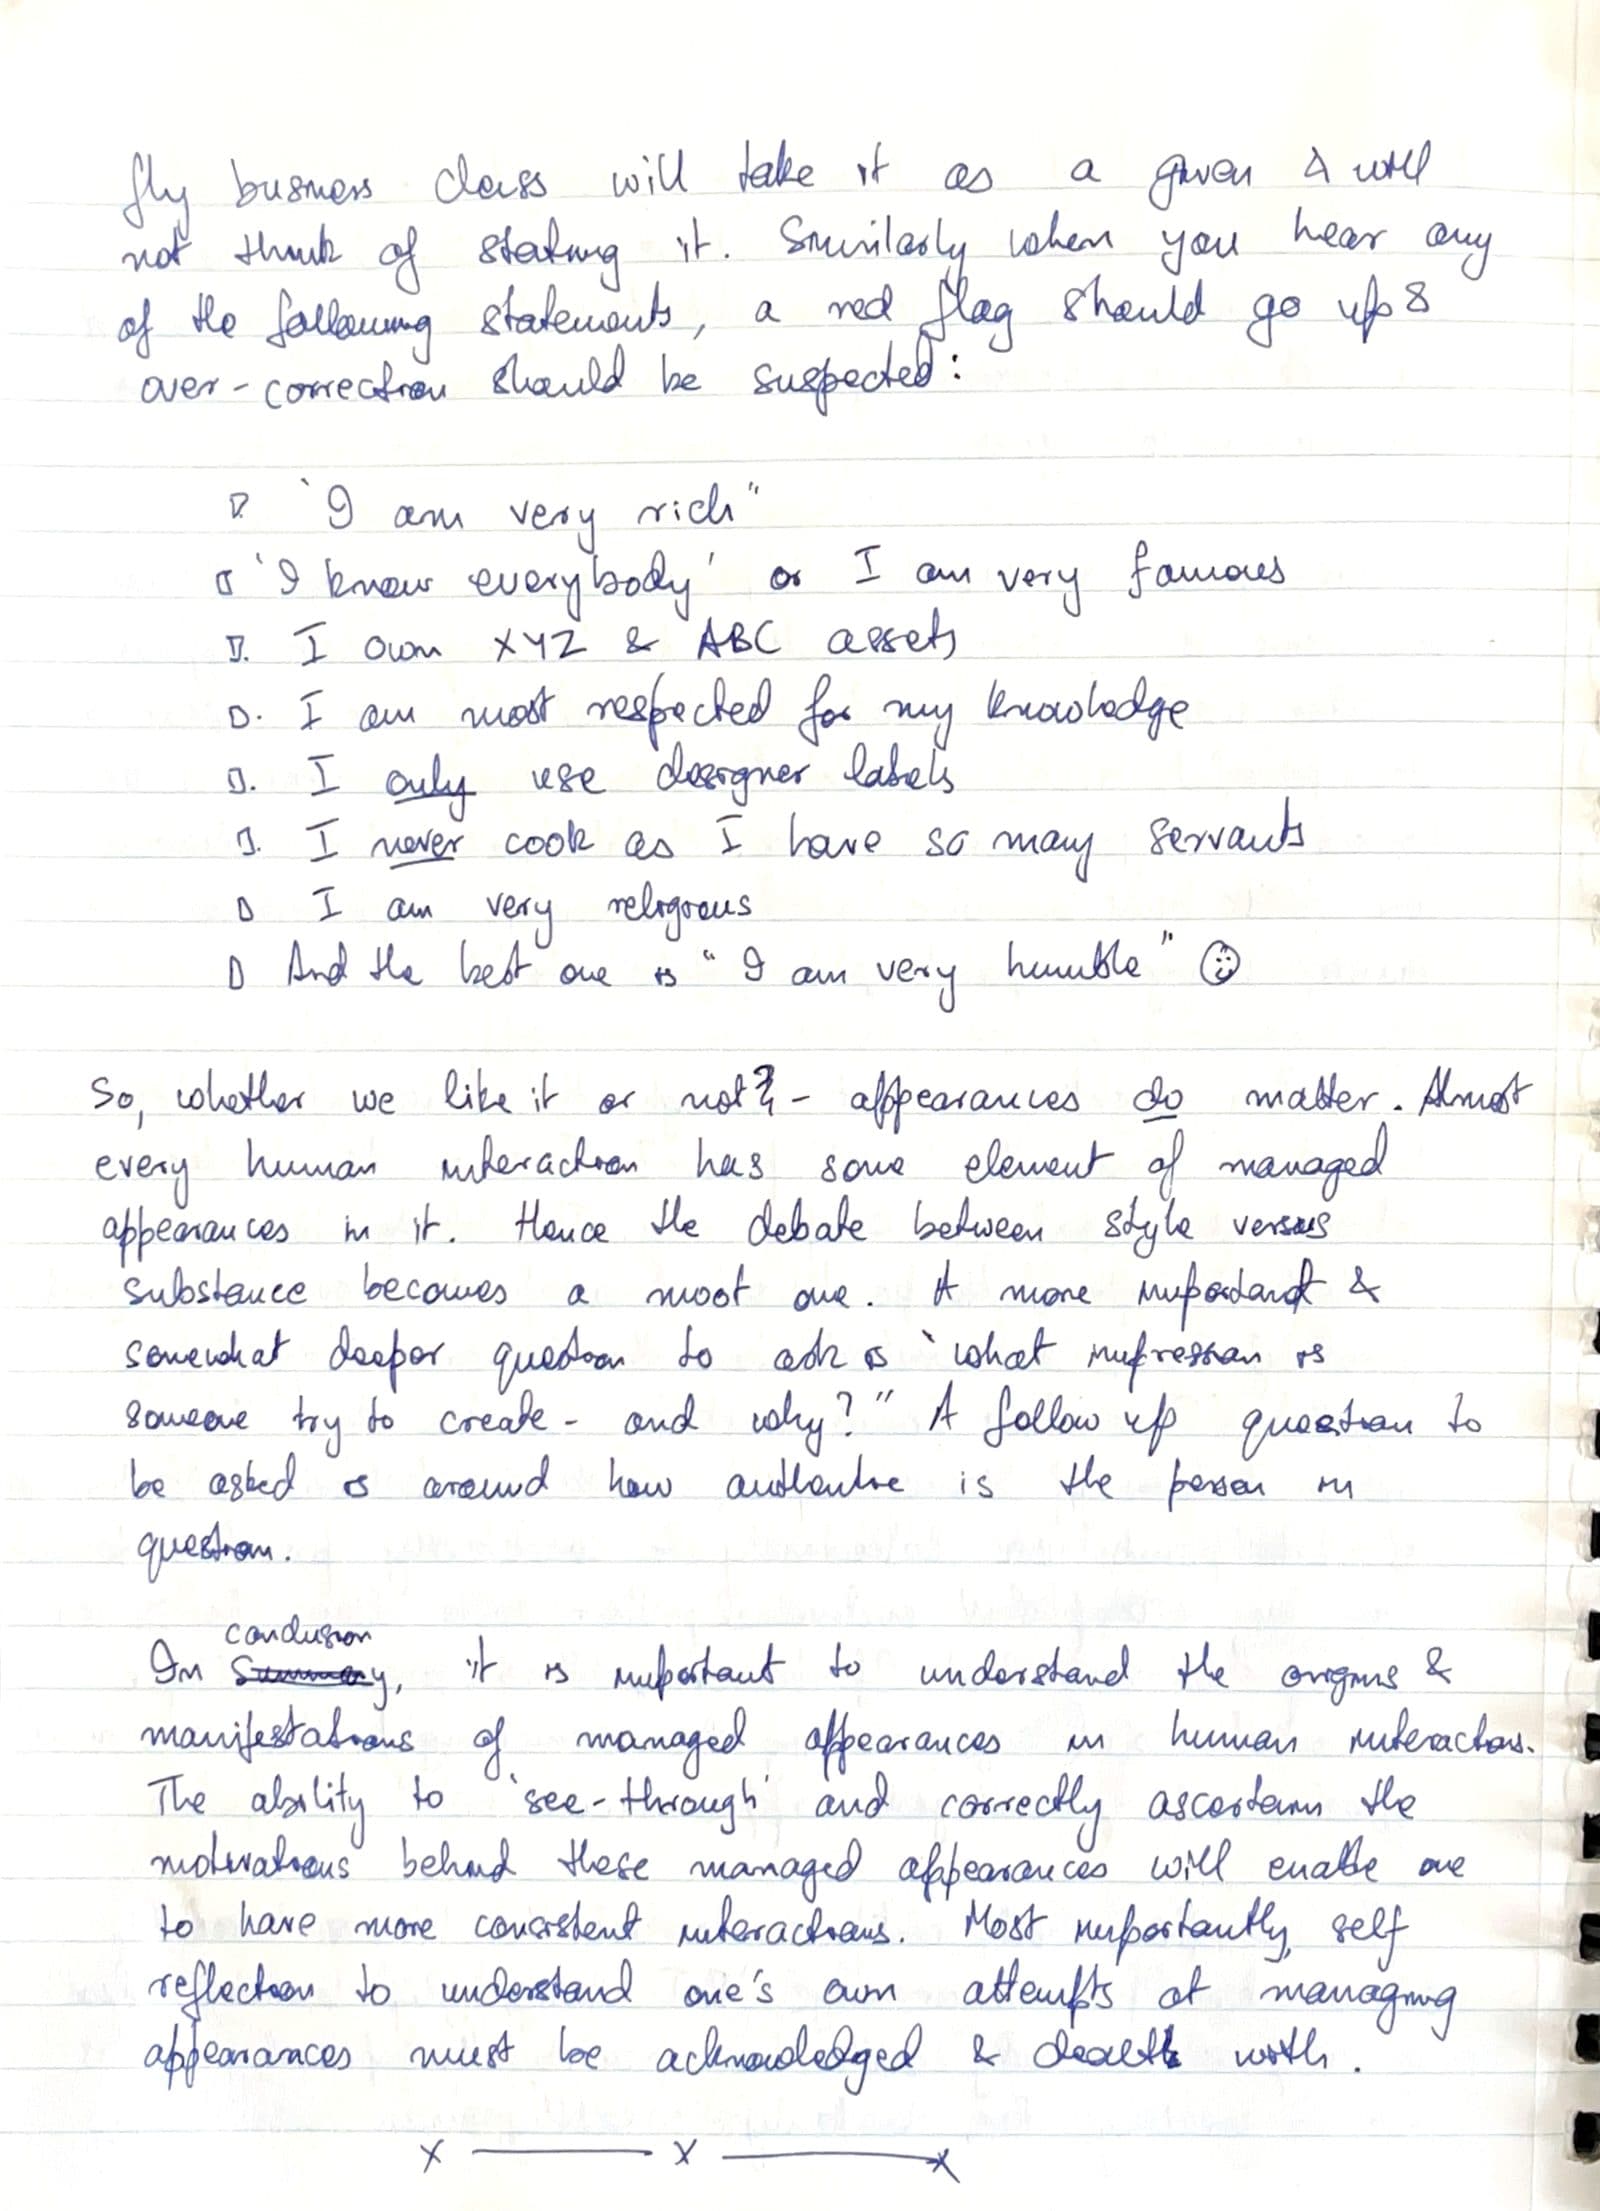 fly business class will take it as a given & will
not think of stating it. Similarly when you hear any
of the following statements, a red flag should go up &
over-correction should be suspected:
▷. 'I am very rich"
▷ 'I know everybody' or I am very famous
▷. I own XYZ & ABC assets
▷. I am most respected for my knowledge
▷. I only use designer labels
▷. I never cook as I have so many servants
▷ I am very religious
▷ And the best one is "I am very humble" ☺
So, whether we like it or not - appearances do matter. Almost
every human interaction has some element of managed
appearances in it. Hence the debate between style versus
substance becomes a moot one. A more important &
somewhat deeper question to ask is 'what impression is
someone try to create - and why?" A follow up question to
be asked is around how authentic is the person in
question.
conclusion
In Summary, it is important to understand the origins &
manifestations of managed appearances in human interactions.
The ability to 'see-through' and correctly ascertain the
motivations behind these managed appearances will enable one
to have more consistent interactions. Most importantly, self
reflection to understand one's own attempts at managing
appearances must be acknowledged & dealt with.
x — x — x